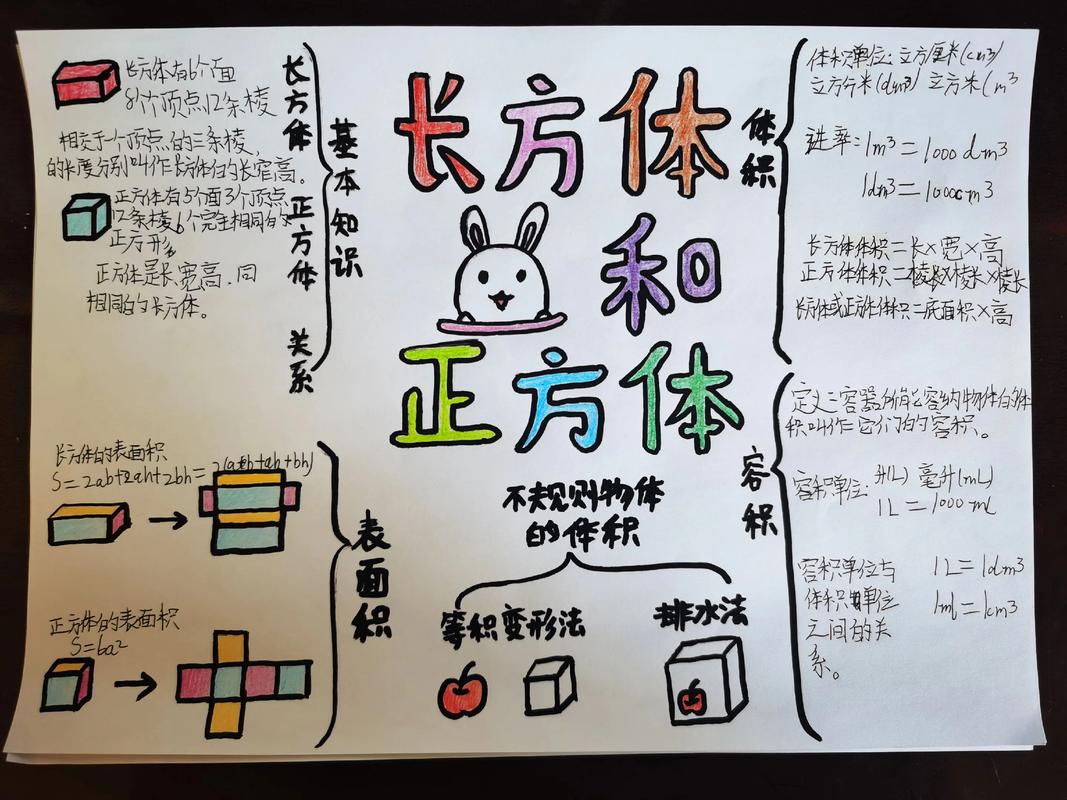 长方体
和
正方体
基本知识
长方体
长方体有6个面
8个顶点12条棱
相交于一个顶点的三条棱,
的长度分别叫作长方体的长宽高。
正方体
正方体有5个面3个顶点
12条棱6个完全相同的
正方形
关系
正方体是长宽高.同
相同的的长方体。
表面积
长方体的表面积
S=2ab+2ah+2bh=2(ab+ah+bh)
正方体的表面积
S=6a²
不规则物体
的体积
等积变形法
排水法
体积
体积单位:立方厘米(cm³)
立方分米(dm³) 立方米(m³
进率:1m³=1000dm³
1dm³=1000cm³
长方体体积=长×宽×高
正方体体积=棱长×棱长×棱长
长方体或正方体体积=底面积×高
容积
定义:容器所能容纳物体的体
积叫作它们的容积。
容积单位:升(L) 毫升(mL)
1L=1000mL
容积单位与
体积单位
之间的关
系。
1L=1dm³
1ml=1cm³